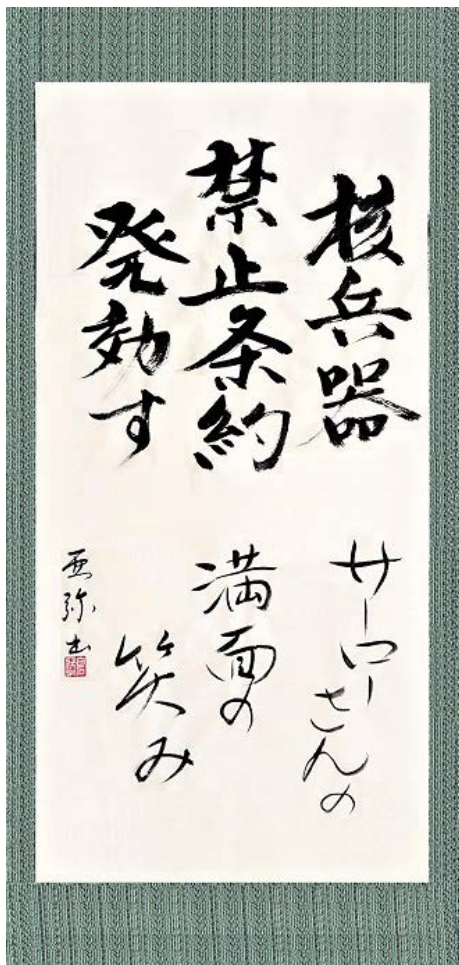 核兵器
禁止条約
発効す
サーローさんの
満面の
笑み
亜弥書